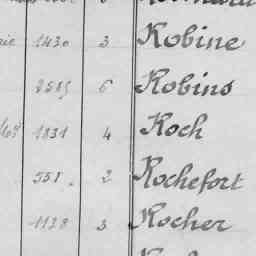 1430 3 Robine
2585 6 Robins
1831 4 Roch
551. 2 Rochefort
1128 3 Rocher